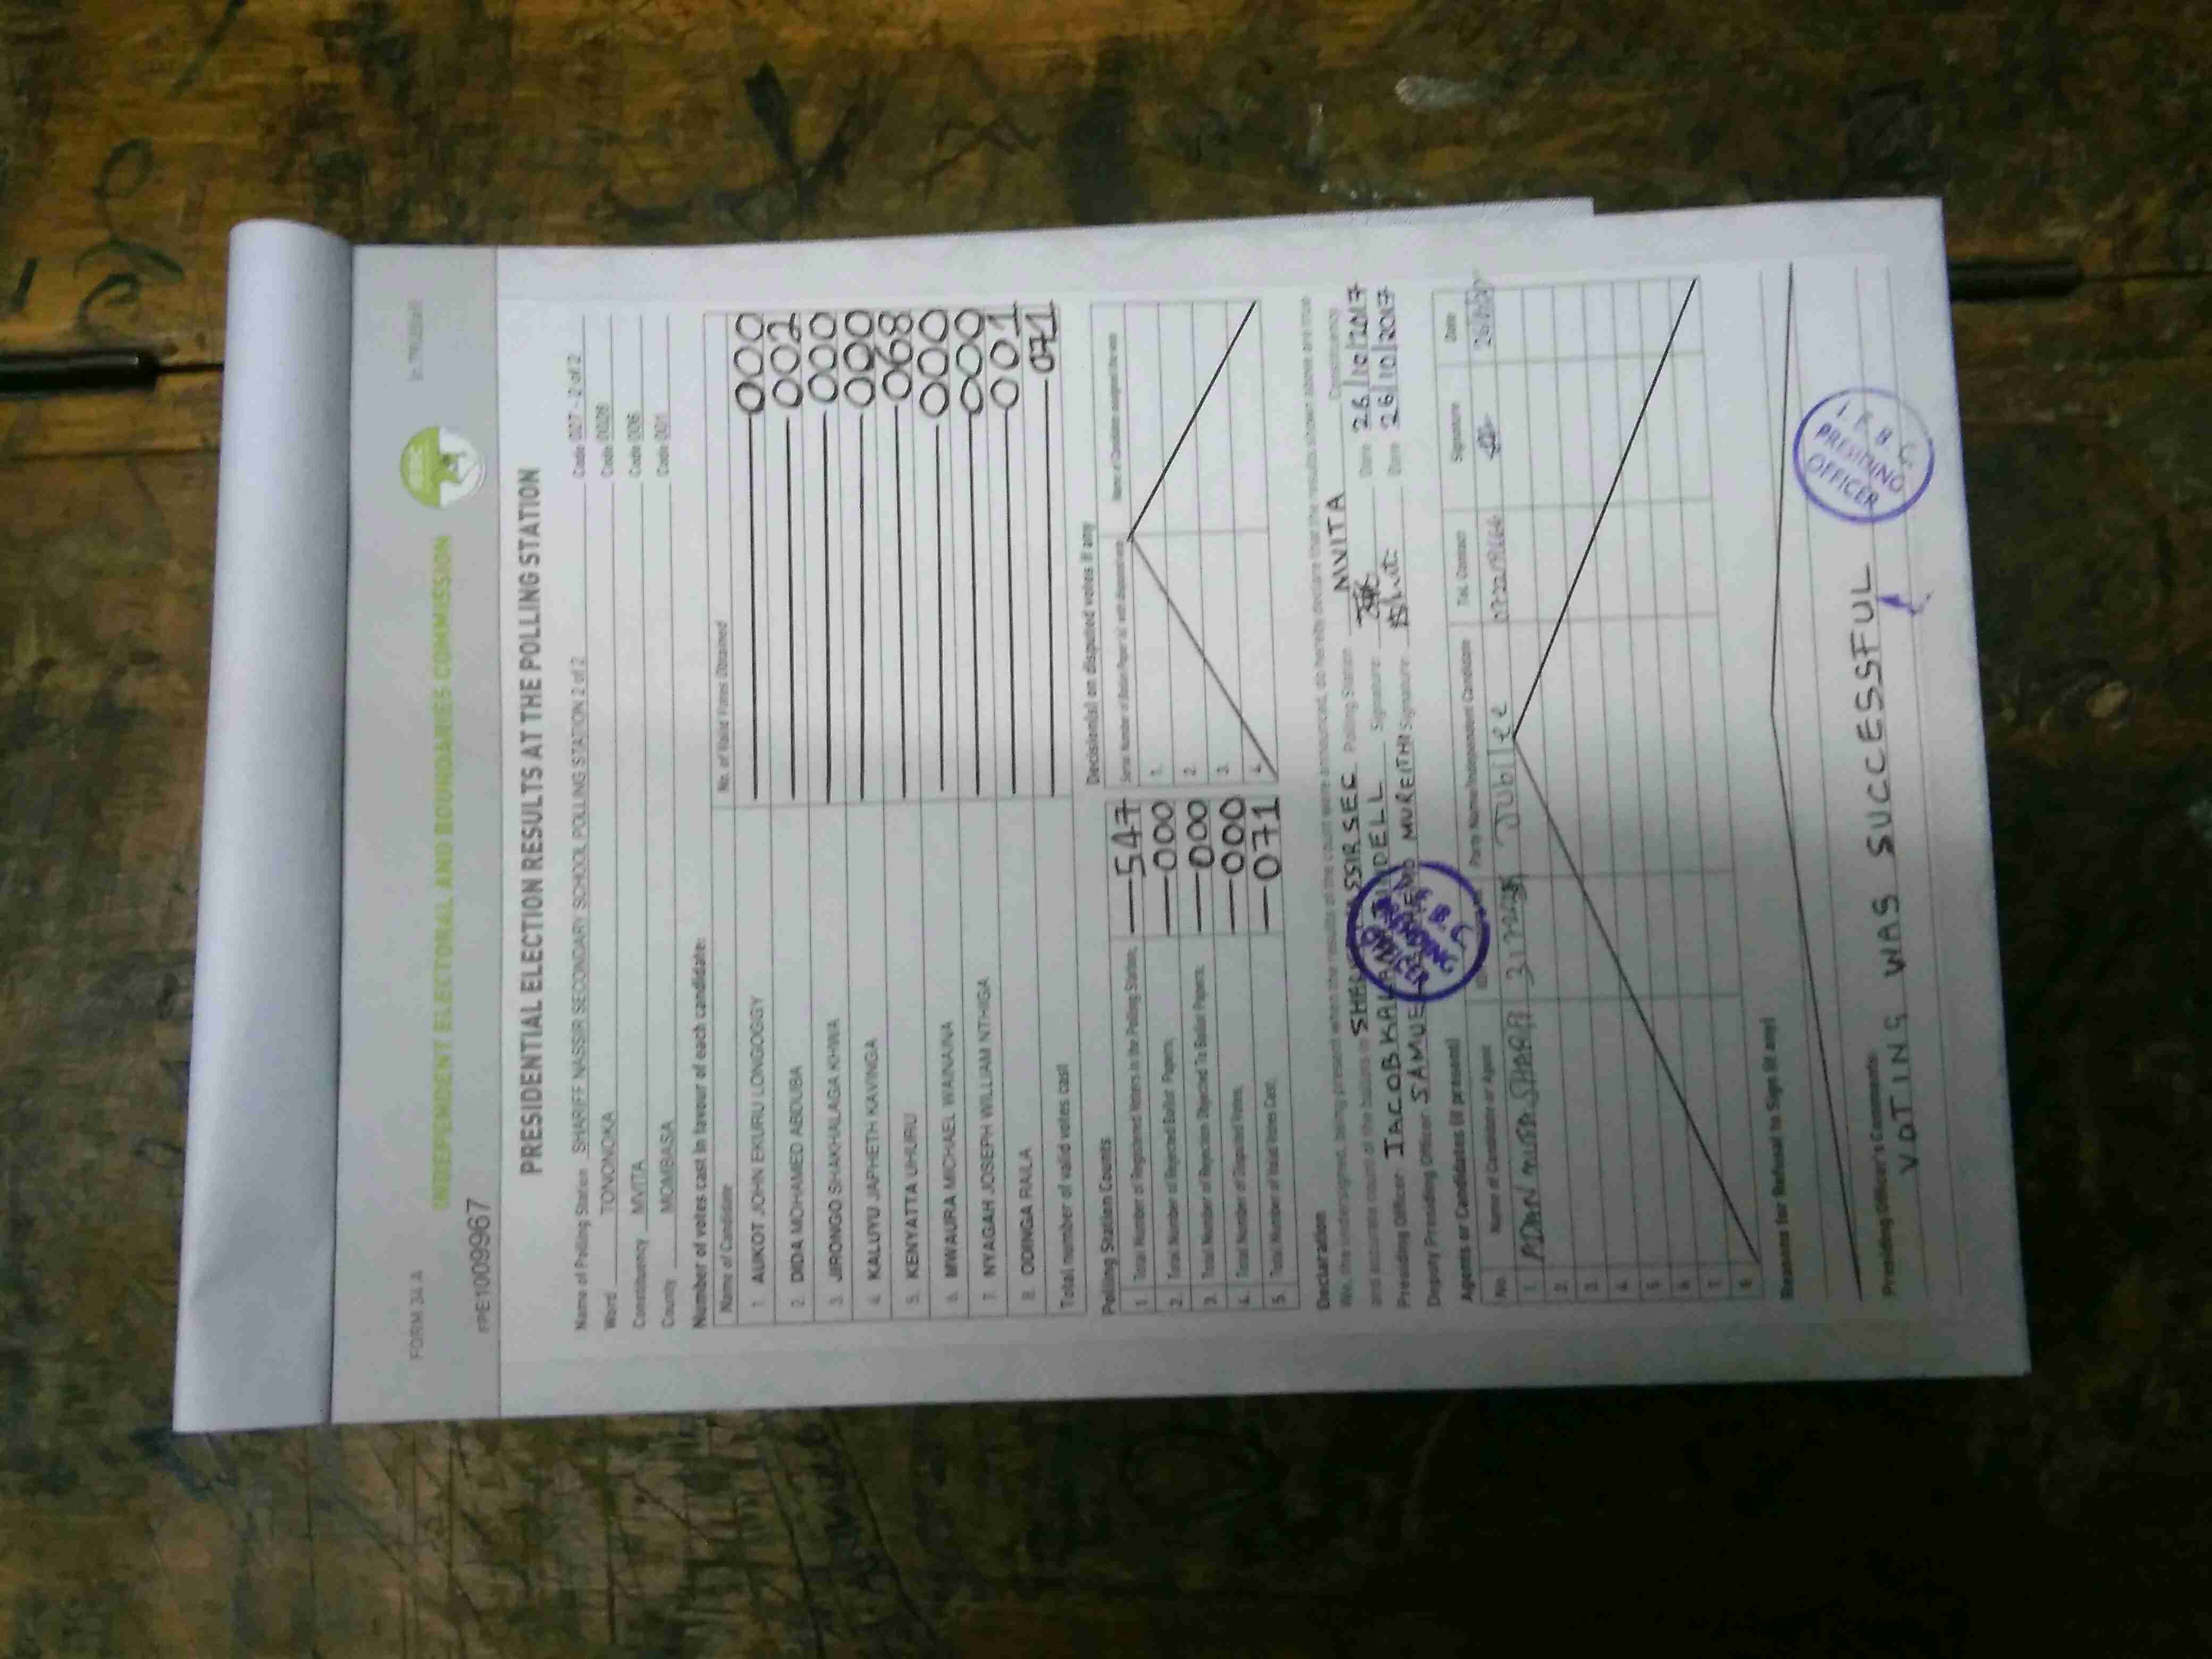 FORM 34 A
INDEPENDENT ELECTORAL AND BOUNDARIES COMMISSION
PPE1009967
PRESIDENTIAL ELECTION RESULTS AT THE POLLING STATION
Name of Polling Station SHARIFF NASSIR SECONDARY SCHOOL POLLING STATION 2 of 2 Code 027 - 2 of 2
Ward TONONOKA Code 0028
Constituency MVITA Code 006
County MOMBASA Code 001
Number of votes cast in favour of each candidate:
Name of Candidate No. of Valid Votes Obtained
1. AUKOT JOHN EKURU LONGOGGY 000
2. DIDA MOHAMED ABDUBA 002
3. JIRONGO SHAKHALAGA KHWA 000
4. KALUYU JAPHETH KAVINGA 000
5. KENYATTA UHURU 068
6. MWAURA MICHAEL WAINAINA 000
7. NYAGAH JOSEPH WILLIAM NTHIGA 000
8. ODINGA RAILA 001
Total number of valid votes cast 071
Polling Station Counts
1. Total Number of Registered Voters in the Polling Station 547
2. Total Number of Rejected Ballot Papers 000
3. Total Number of Rejection Objected To Ballot Papers 000
4. Total Number of Disputed Votes 000
5. Total Number of Valid Votes Cast 071
Decision(s) on disputed votes if any
1.
2.
3.
4.
Declaration
We, the undersigned, being present when the results of the count were announced, do hereby declare that the results shown above are true
and accurate count of the ballots in SSIR SEC Polling Station MVITA Constituency
Presiding Officer JACOB Signature: Date 26/10/2017
Deputy Presiding Officer SAMUEL MUREITHI Signature: Date 26/10/2017
Agents or Candidates (if present)
No. Name of Candidate or Agent Party Name/Independent Candidate Tel. Contact Signature Date
1. Jubilee
2.
3.
4.
5.
6.
7.
8.
Reasons for Refusal to Sign (if any)
Presiding Officer's Comments:
VOTING WAS SUCCESSFUL
PRESIDING
OFFICER